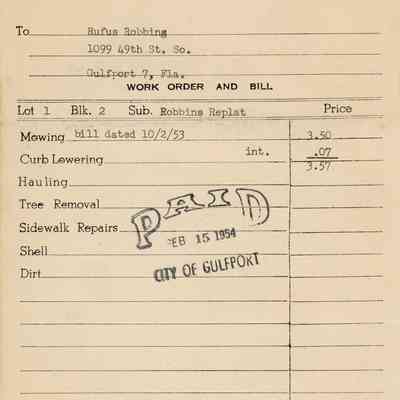 To Rufus Robbins
1099 49th St. So.
Gulfport 7, Fla.
WORK ORDER AND BILL
Lot 1 Blk. 2 Sub. Robbins Replat Price
Mowing bill dated 10/2/53 3.50
Curb Lowering int. .07
3.57
Hauling
Tree Removal
Sidewalk Repairs
Shell
Dirt
PAID
FEB 15 1954
CITY OF GULFPORT